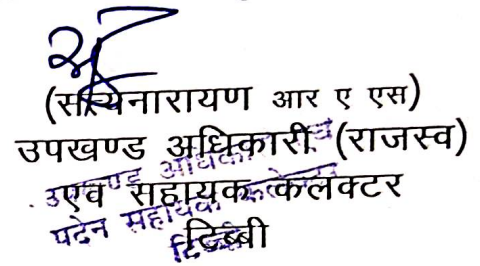 (सत्यनारायण आर ए एस)
उपखण्ड अधिकारी (राजस्व)
एव सहायक कलक्टर
टिब्बी
उपखण्ड अधिकारी एवं
पदेन सहायक कलेक्टर
टिब्बी